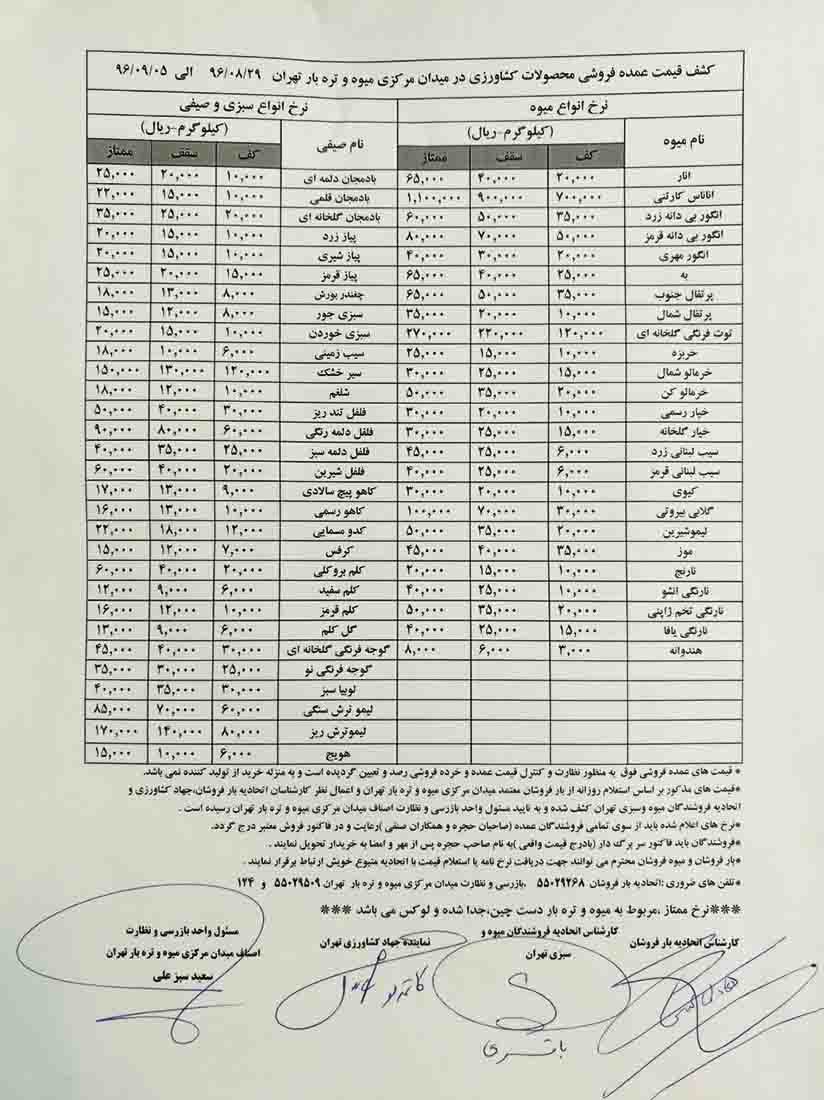 کشف قیمت عمده فروشی محصولات کشاورزی در میدان مرکزی میوه و تره بار تهران ۹۶/۰۸/۲۹ الی ۹۶/۰۹/۰۵
نرخ انواع میوه نرخ انواع سبزی و صیفی
نام میوه (کیلوگرم-ریال) نام صیفی (کیلوگرم-ریال)
کف سقف ممتاز کف سقف ممتاز
انار ۲۰,۰۰۰ ۴۰,۰۰۰ ۶۵,۰۰۰ بادمجان دلمه ای ۱۰,۰۰۰ ۲۰,۰۰۰ ۲۵,۰۰۰
اناناس کارتنی ۷۰۰,۰۰۰ ۹۰۰,۰۰۰ ۱,۱۰۰,۰۰۰ بادمجان قلمی ۱۰,۰۰۰ ۱۵,۰۰۰ ۲۲,۰۰۰
انگور بی دانه زرد ۳۵,۰۰۰ ۵۰,۰۰۰ ۶۰,۰۰۰ بادمجان گلخانه ای ۲۰,۰۰۰ ۲۵,۰۰۰ ۳۵,۰۰۰
انگور بی دانه قرمز ۵۰,۰۰۰ ۷۰,۰۰۰ ۸۰,۰۰۰ پیاز زرد ۱۰,۰۰۰ ۱۵,۰۰۰ ۲۰,۰۰۰
انگور مهری ۲۰,۰۰۰ ۳۰,۰۰۰ ۴۰,۰۰۰ پیاز شیری ۱۰,۰۰۰ ۱۵,۰۰۰ ۲۰,۰۰۰
به ۲۵,۰۰۰ ۴۰,۰۰۰ ۶۵,۰۰۰ پیاز قرمز ۱۵,۰۰۰ ۲۰,۰۰۰ ۲۵,۰۰۰
پرتقال جنوب ۳۵,۰۰۰ ۵۰,۰۰۰ ۶۵,۰۰۰ چغندر بورش ۸,۰۰۰ ۱۳,۰۰۰ ۱۸,۰۰۰
پرتقال شمال ۱۰,۰۰۰ ۲۰,۰۰۰ ۳۵,۰۰۰ سبزی جور ۸,۰۰۰ ۱۲,۰۰۰ ۱۵,۰۰۰
توت فرنگی گلخانه ای ۱۲۰,۰۰۰ ۲۲۰,۰۰۰ ۲۷۰,۰۰۰ سبزی خوردن ۱۰,۰۰۰ ۱۵,۰۰۰ ۲۰,۰۰۰
خربزه ۱۰,۰۰۰ ۱۵,۰۰۰ ۲۵,۰۰۰ سیب زمینی ۶,۰۰۰ ۱۰,۰۰۰ ۱۸,۰۰۰
خرمالو شمال ۱۵,۰۰۰ ۲۵,۰۰۰ ۳۰,۰۰۰ سیر خشک ۱۲۰,۰۰۰ ۱۳۰,۰۰۰ ۱۵۰,۰۰۰
خرمالو کن ۲۰,۰۰۰ ۳۵,۰۰۰ ۵۰,۰۰۰ شلغم ۱۰,۰۰۰ ۱۲,۰۰۰ ۱۸,۰۰۰
خیار رسمی ۱۰,۰۰۰ ۲۰,۰۰۰ ۳۰,۰۰۰ فلفل تند ریز ۳۰,۰۰۰ ۴۰,۰۰۰ ۵۰,۰۰۰
خیار گلخانه ۱۵,۰۰۰ ۲۵,۰۰۰ ۳۰,۰۰۰ فلفل دلمه رنگی ۶۰,۰۰۰ ۸۰,۰۰۰ ۹۰,۰۰۰
سیب لبنانی زرد ۶,۰۰۰ ۲۵,۰۰۰ ۴۵,۰۰۰ فلفل دلمه سبز ۲۵,۰۰۰ ۳۵,۰۰۰ ۴۰,۰۰۰
سیب لبنانی قرمز ۶,۰۰۰ ۲۵,۰۰۰ ۴۰,۰۰۰ فلفل شیرین ۲۰,۰۰۰ ۴۰,۰۰۰ ۶۰,۰۰۰
کیوی ۱۰,۰۰۰ ۲۰,۰۰۰ ۳۰,۰۰۰ کاهو پیچ سالادی ۹,۰۰۰ ۱۳,۰۰۰ ۱۷,۰۰۰
گلابی بیروتی ۳۰,۰۰۰ ۷۰,۰۰۰ ۱۰۰,۰۰۰ کاهو رسمی ۱۰,۰۰۰ ۱۳,۰۰۰ ۱۶,۰۰۰
لیموشیرین ۲۰,۰۰۰ ۳۵,۰۰۰ ۵۰,۰۰۰ کدو مسمایی ۱۲,۰۰۰ ۱۸,۰۰۰ ۲۲,۰۰۰
موز ۳۵,۰۰۰ ۴۰,۰۰۰ ۴۵,۰۰۰ کرفس ۷,۰۰۰ ۱۲,۰۰۰ ۱۵,۰۰۰
نارنج ۱۰,۰۰۰ ۱۵,۰۰۰ ۲۰,۰۰۰ کلم بروکلی ۲۰,۰۰۰ ۴۰,۰۰۰ ۶۰,۰۰۰
نارنگی انشو ۱۰,۰۰۰ ۲۵,۰۰۰ ۴۰,۰۰۰ کلم سفید ۶,۰۰۰ ۹,۰۰۰ ۱۲,۰۰۰
نارنگی تخم ژاپنی ۲۰,۰۰۰ ۳۵,۰۰۰ ۵۰,۰۰۰ کلم قرمز ۱۰,۰۰۰ ۱۲,۰۰۰ ۱۶,۰۰۰
نارنگی یافا ۱۵,۰۰۰ ۲۵,۰۰۰ ۴۰,۰۰۰ گل کلم ۶,۰۰۰ ۹,۰۰۰ ۱۳,۰۰۰
هندوانه ۳,۰۰۰ ۶,۰۰۰ ۸,۰۰۰ گوجه فرنگی گلخانه ای ۳۰,۰۰۰ ۴۰,۰۰۰ ۴۵,۰۰۰
گوجه فرنگی نو ۲۵,۰۰۰ ۳۰,۰۰۰ ۳۵,۰۰۰
لوبیا سبز ۳۰,۰۰۰ ۳۵,۰۰۰ ۴۰,۰۰۰
لیمو ترش سنگی ۶۰,۰۰۰ ۷۰,۰۰۰ ۸۵,۰۰۰
لیموترش ریز ۸۰,۰۰۰ ۱۴۰,۰۰۰ ۱۷۰,۰۰۰
هویج ۶,۰۰۰ ۱۰,۰۰۰ ۱۵,۰۰۰
* قیمت های عمده فروشی فوق به منظور نظارت و کنترل قیمت عمده و خرده فروشی رصد و تعیین گردیده است و به منزله خرید از تولید کننده نمی باشد.
*قیمت های مذکور بر اساس استعلام روزانه از بار فروشان معتمد میدان مرکزی میوه و تره بار تهران و اعمال نظر کارشناسان اتحادیه بار فروشان،جهاد کشاورزی و
اتحادیه فروشندگان میوه وسبزی تهران کشف شده و به تایید مسئول واحد بازرسی و نظارت اصناف میدان مرکزی میوه و تره بار تهران رسیده است .
*نرخ های اعلام شده باید از سوی تمامی فروشندگان عمده (صاحبان حجره و همکاران صنفی )رعایت و در فاکتور فروش معتبر درج گردد.
*فروشندگان باید فاکتور سر برگ دار (بادرج قیمت واقعی )به نام صاحب حجره پس از مهر و امضا به خریدار تحویل نمایند .
*بار فروشان و میوه فروشان محترم می توانند جهت دریافت نرخ نامه یا استعلام قیمت با اتحادیه متبوع خویش ارتباط برقرار نمایند .
*تلفن های ضروری :اتحادیه بار فروشان ۵۵۰۲۹۲۶۸ ،بازرسی و نظارت میدان مرکزی میوه و تره بار تهران ۵۵۰۲۹۵۰۹ و ۱۲۴
***نرخ ممتاز ،مربوط به میوه و تره بار دست چین،جدا شده و لوکس می باشد ***
کارشناس اتحادیه بار فروشان
کارشناس اتحادیه فروشندگان میوه و
سبزی تهران
نماینده جهاد کشاورزی تهران
مسئول واحد بازرسی و نظارت
اصناف میدان مرکزی میوه و تره بار تهران
سعید سبز علی